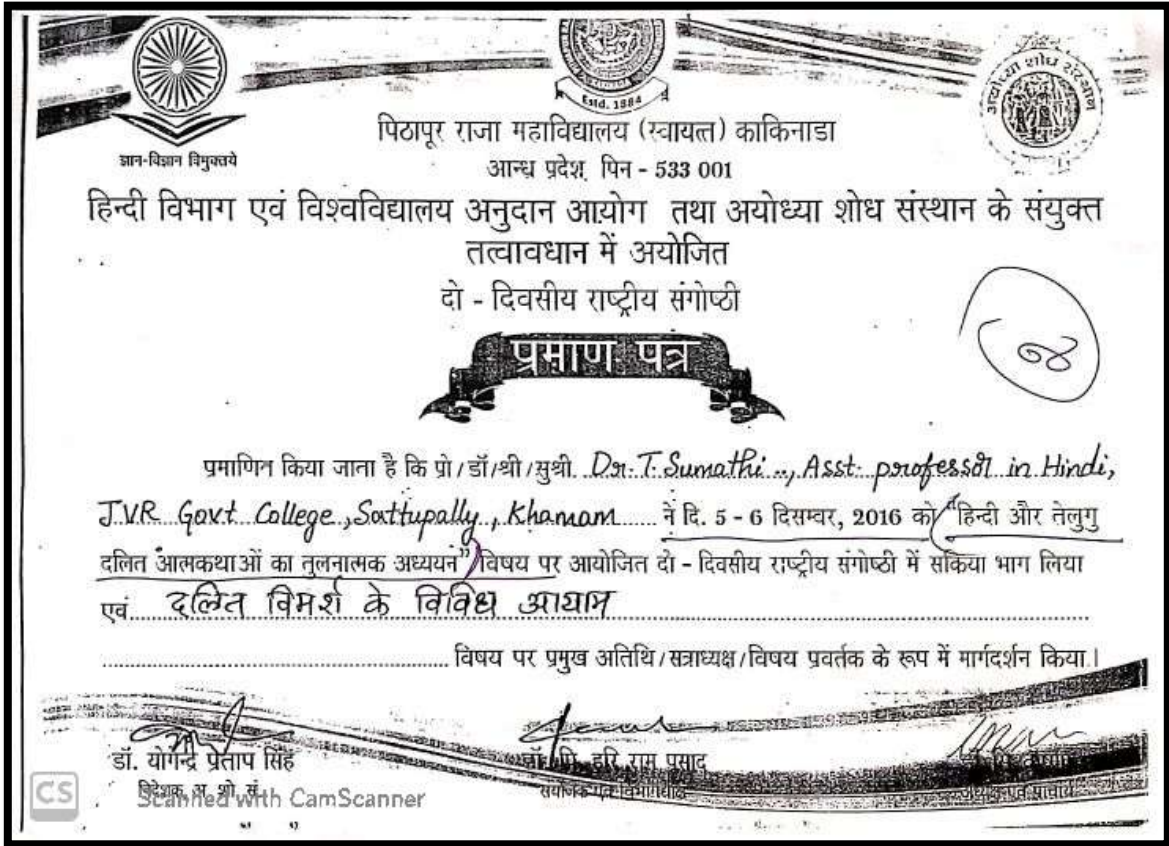 Estd. 1884
अयोध्या शोध संस्थान
ज्ञान-विज्ञान विमुक्तये
पिठापूर राजा महाविद्यालय (स्वायत्त) काकिनाडा
आन्ध्र प्रदेश, पिन - 533 001
हिन्दी विभाग एवं विश्वविद्यालय अनुदान आयोग तथा अयोध्या शोध संस्थान के संयुक्त
तत्वावधान में अयोजित
दो - दिवसीय राष्ट्रीय संगोष्ठी
प्रमाण पत्र
प्रमाणित किया जाता है कि प्रो/डॉ/श्री/सुश्री. Dr. T. Sumathi .., Asst. professor in Hindi,
J.V.R Govt College, Sattupally, Khamam ने दि. 5 - 6 दिसम्वर, 2016 को "हिन्दी और तेलुगु
दलित आत्मकथाओं का तुलनात्मक अध्ययन" विषय पर आयोजित दो - दिवसीय राष्ट्रीय संगोष्ठी में सकिया भाग लिया
एवं दलित विमर्श के विविध आयाम
विषय पर प्रमुख अतिथि/सत्राध्यक्ष/विषय प्रवर्तक के रूप में मार्गदर्शन किया।
डॉ. योगेन्द्र प्रताप सिंह
हरि राम प्रसाद
निदेशक, अ. शो. सं.
CS Scanned with CamScanner